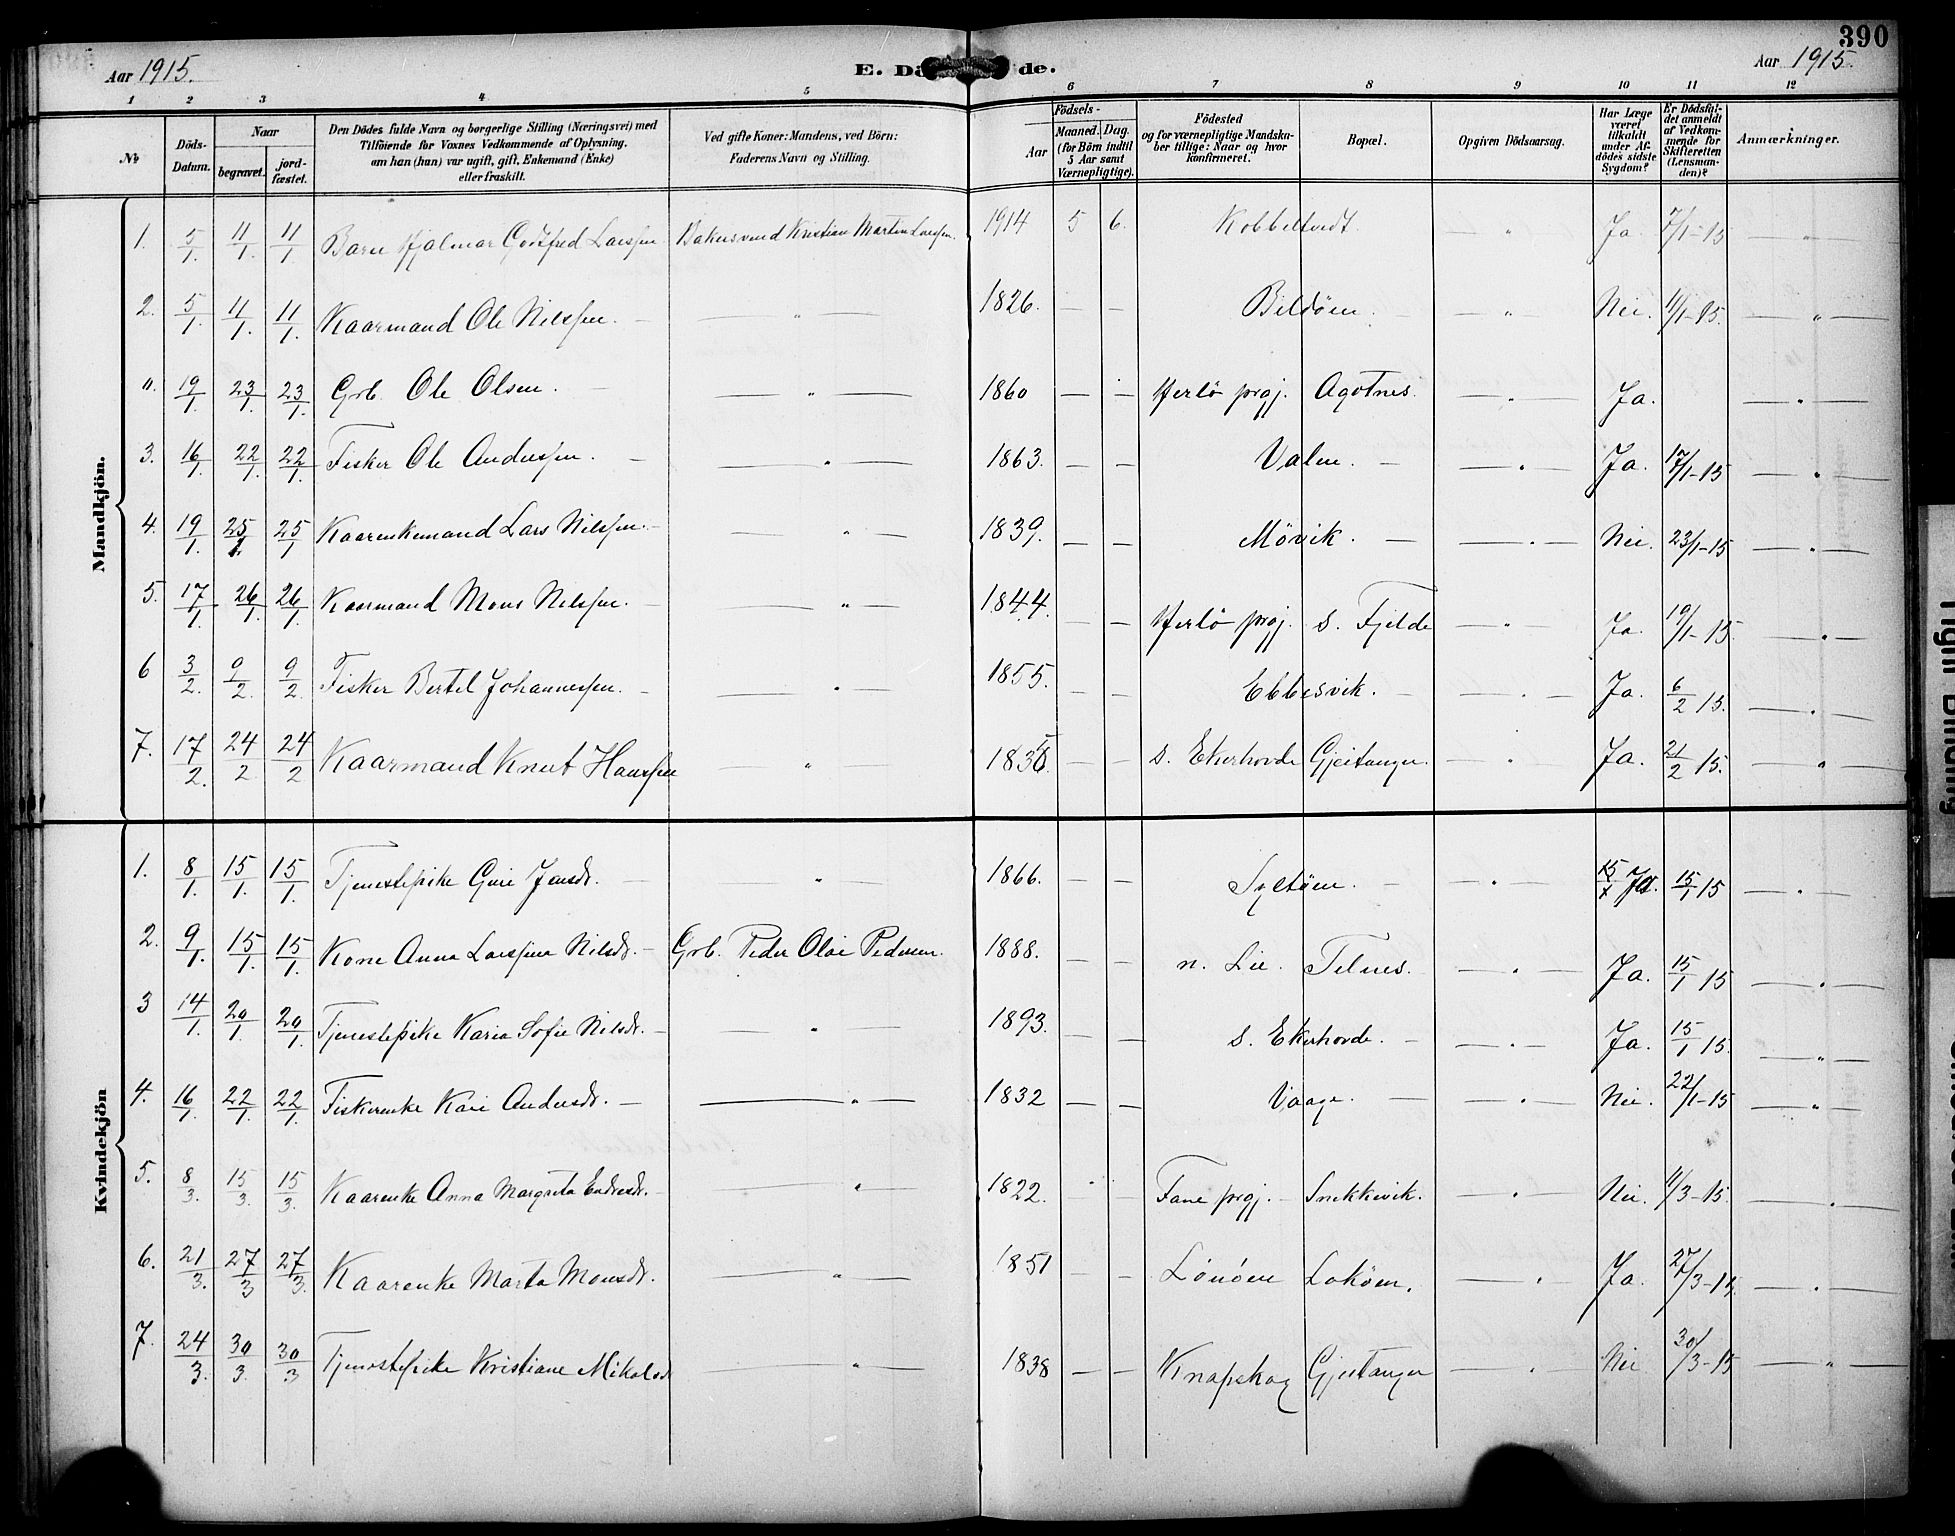 390
Aar 1915. E. Dö de. Aar 1915.
1 2 3 4 5 6 7 8 9 10 11 12
№ Döds-Datum. Naar begravet. jordfæstet. Den Dödes fulde Navn og borgerlige Stilling (Næringsvei) med Tilföiende for Voxnes Vedkommende af Oplysning, om han (hun) var ugift, gift, Enkemand (Enke) eller fraskilt. Ved gifte Koner: Mandens, ved Börn: Faderens Navn og Stilling. Aar Födsels- Maaned. Dag. (for Börn indtil 5 Aar samt Værnepligtige). Födested og for værnepligtige Mandskaber tillige: Naar og hvor konfirmeret. Bopæl. Opgiven Dödsaarsag. Har Læge været tilkaldt under Afdödes sidste Sygdom? Er Dödsfaldet anmeldt af Vedkommende for Skifteretten (Lensmanden)? Anmærkninger.
Mandkjön.
1. 5/1. 11/1. 11/1 Barn Hjalmar Godtfred Larssen. Bakersvend Kristian Martin Larssen. 1914 5 6. Kobbeltvedt. — " Ja. 7/1-15 "
2. 5/1. 11/1. 11/1. Kaarmand Ole Nilssen. — — " — 1826. — — Bildöen. — — " — Nei. 11/1-15. — " —
". 19/1. 23/1. 23/1. Grb. Ole Olsen. — — " — 1860 — — Herlö prgj. Agotnes. — " — Ja. — " —
3. 16/1. 22/1. 22/1. Fisker Ole Anderssen. — — " — 1863. — — Valen. — — " — Ja. 17/1-15 — " —
4. 19/1. 25/1. 25/1 Kaarenkemand Lars Nilssen. — — " — 1839. — — Mövik. — — " — Nei. 23/1-15 — " —
5. 17/1. 26/1. 26/1. Kaarmand Mons Nilssen. — — " — 1844. — — Herlö prgj. s. Fjelde — " — Ja. 19/1-15. — " —
6 3/2. 9/2. 9/2. Fisker Bertel Johannessen. — — " — 1855. — — Ebbesvik. — — " — Ja. 6/2 15. — " —
7. 17/2. 24/2 24/2 Kaarmand Knut Hanssen — " — — — s. Ekerhovde Gjeitanger. — " — Ja. 21/2 15. — " —
Kvindekjön
1. 8/1. 15/1. 15/1. Tjenestepike Guri Jensdr. — — " — 1866. — — Syltöen. — — " — Ja. 15/1 15 — " —
2. 9/1. 15/1. 15/1. Kone Anna Larssine Nilsdr. — Grb. Peder Olai Pedersen. 1888. — — n. Lie. Telnes. — " — Ja. 15/1 15 — " —
3 14/1. 20/1. 20/1. Tjenestepike Karia Sofie Nilsdr. — — " — 1893. — — s. Ekerhovde. — — " — Ja. 15/1 15. — " —
4. 16/1. 22/1. 22/1. Fiskerenke Kari Andersdr. — — " — 1832 — — Vaage. — — " — Nei. 22/1-15 — " —
5. 8/3. 15/3. 15/3. Kaarenke Anna Margreta Endresdr. — — " — 1822. " — Fane prgj. — Snekkevik. — " — Nei. 11/3-15. — " —
6. 21/3. 27/3 27/3. Kaarenke Marta Monsdr. — " — 1851 — Lönöen Loköen. — " Ja. 27/3-15. — " —
7. 24/3. 30/3. 30/3 Tjenestepike Kristiane Mikalsd — " — 1838 — — Knapskog Gjeitanger — " Nei 30/3-15 — " —